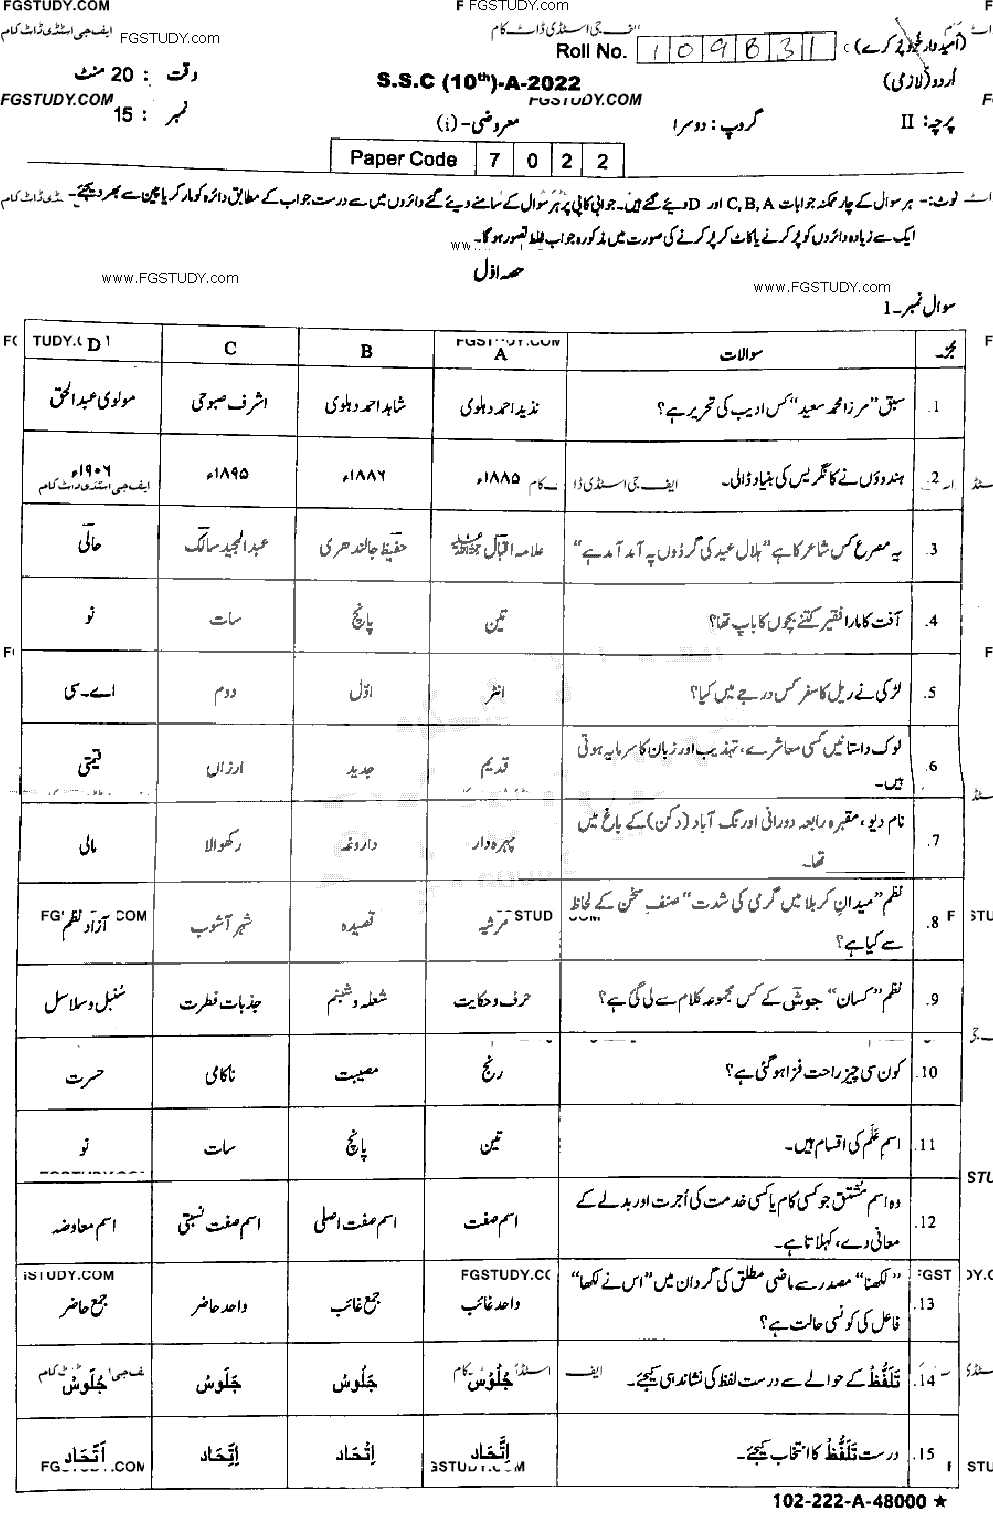 FGSTUDY.COM
FGSTUDY.com
ایف جی اسٹڈی ڈاٹ کام
FGSTUDY.com
ف جی اسٹڈی ڈاٹ کام
(امیدوار خود پُر کرے)
Roll No. 109831
اُردو (لازمی)
S.S.C (10th)-A-2022
وقت : 20 منٹ
FGSTUDY.COM
FGSTUDY.COM
پرچہ: II
گروپ : دوسرا
معروضی-(i)
نمبر : 15
Paper Code 7 0 2 2
نوٹ:- ہر سوال کے چار ممکنہ جوابات C, B, A اور D دیئے گئے ہیں۔ جوابی کاپی پر ہر سوال کے سامنے دیئے گئے دائروں میں سے درست جواب کے مطابق دائرہ کو مارکر یا پین سے بھر دیجئے۔
ایک سے زیادہ دائروں کو پُر کرنے یا کاٹ کر پُر کرنے کی صورت میں مذکورہ جواب غلط تصور ہوگا۔
حصہ اوّل
www.FGSTUDY.com
www.FGSTUDY.com
سوال نمبر-1
سوالات A B C D
1. سبق "مرزا محمد سعید" کس ادیب کی تحریر ہے؟ نذید احمد دہلوی شاہد احمد دہلوی اشرف صبوحی مولوی عبدالحق
2. ہندوؤں نے کانگریس کی بنیاد ڈالی۔ ۱۸۸۵ء ۱۸۸۶ء ۱۸۹۵ء ۱۹۰۶ء
ایف جی اسٹڈی ڈاٹ کام
3. یہ مصرع کس شاعر کا ہے "ہلال عید کی گردُوں پہ آمد آمد ہے" علامہ اقبال حفیظ جالندھری عبدالمجید سالک حالی
4. آفت کا مارا فقیر کتنے بچوں کا باپ تھا؟ تین پانچ سات نو
5. لڑکی نے ریل کا سفر کس درجے میں کیا؟ انٹر اوّل دوم اے-سی
6. لوک داستانیں کسی معاشرے، تہذیب اور زبان کا سرمایہ ہوتی
ہیں۔ قدیم جدید ارزاں قیمتی
7. نام دیو، مقبرہ رابعہ دورانی اورنگ آباد (دکن) کے باغ میں
______ تھا۔ پہرہ دار داروغہ رکھوالا مالی
8. نظم "میدانِ کربلا میں گرمی کی شدت" صنفِ سخن کے لحاظ
سے کیا ہے؟ مرثیہ قصیدہ شہر آشوب آزاد نظم
9. نظم "کسان" جوش کے کس مجموعہ کلام سے لی گئی ہے؟ حرف و حکایت شعلہ و شبنم جذبات فطرت سُنبل و سلاسل
10. کون سی چیز راحت فزا ہوگئی ہے؟ رنج مصیبت ناکامی حسرت
11. اسم عَلَم کی اقسام ہیں۔ تین پانچ سات نو
12. وہ اسم مُشتق جو کسی کام یا کسی خدمت کی اُجرت اور بدلے کے
معانی دے، کہلاتا ہے۔ اسم صفت اسم صفت اصلی اسم صفت نسبتی اسم معاوضہ
FGSTUDY.COM
13. "لکھنا" مصدر سے ماضی مطلق کی گردان میں "اس نے لکھا"
فاعل کی کونسی حالت ہے؟ واحد غائب جمع غائب واحد حاضر جمع حاضر
14. تَلَفُّظ کے حوالے سے درست لفظ کی نشاندہی کیجئے۔ جُلُوْس جَلُوس جَلَوس جُلَوْس
15. درست تَلَفُّظ کا انتخاب کیجئے۔ اِتَّحاد اِتْحَاد اِتِّحَاد اَتَّحَاد
102-222-A-48000 ★